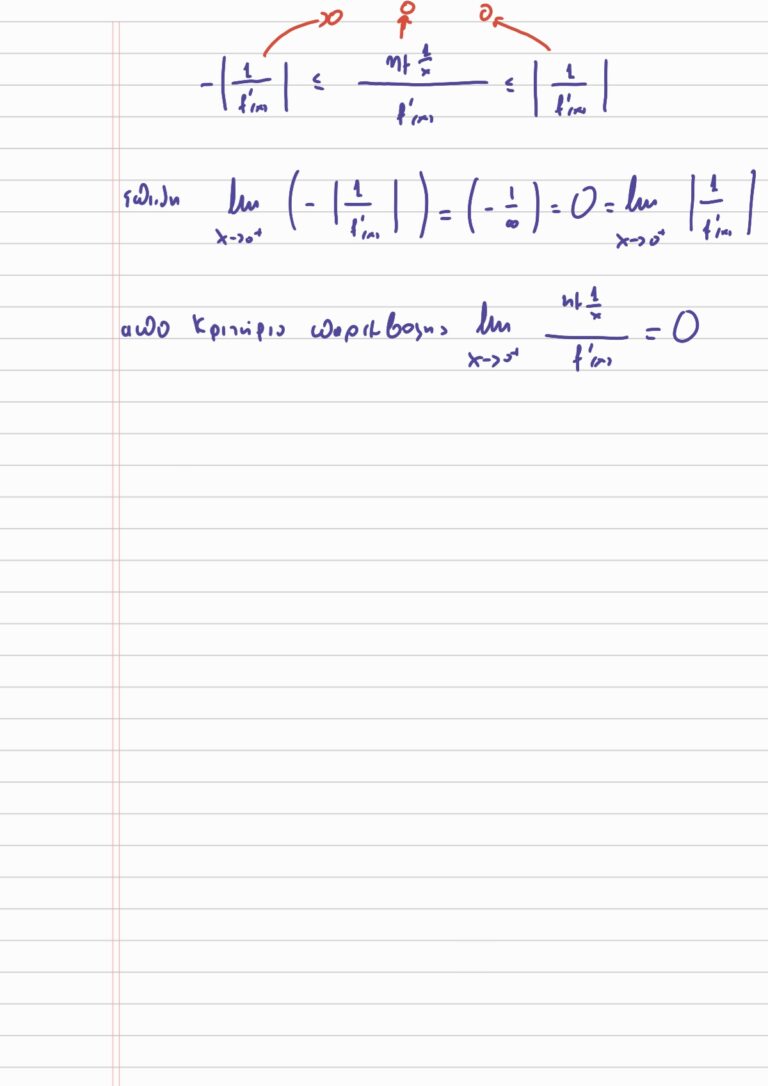 0 0 0
-|1/f'(x)| ≤ ημ 1/x / f'(x) ≤ |1/f'(x)|
επειδη lim x→0⁺ (-|1/f'(x)|) = (-1/∞) = 0 = lim x→0⁺ |1/f'(x)|
απο κριτήριο παρεμβολης lim x→0⁺ ημ 1/x / f'(x) = 0